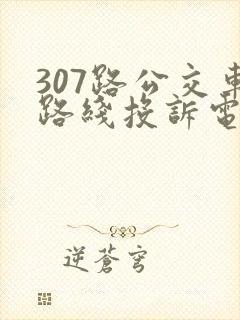 307路公交車
路綫投訴電
逆蒼穹